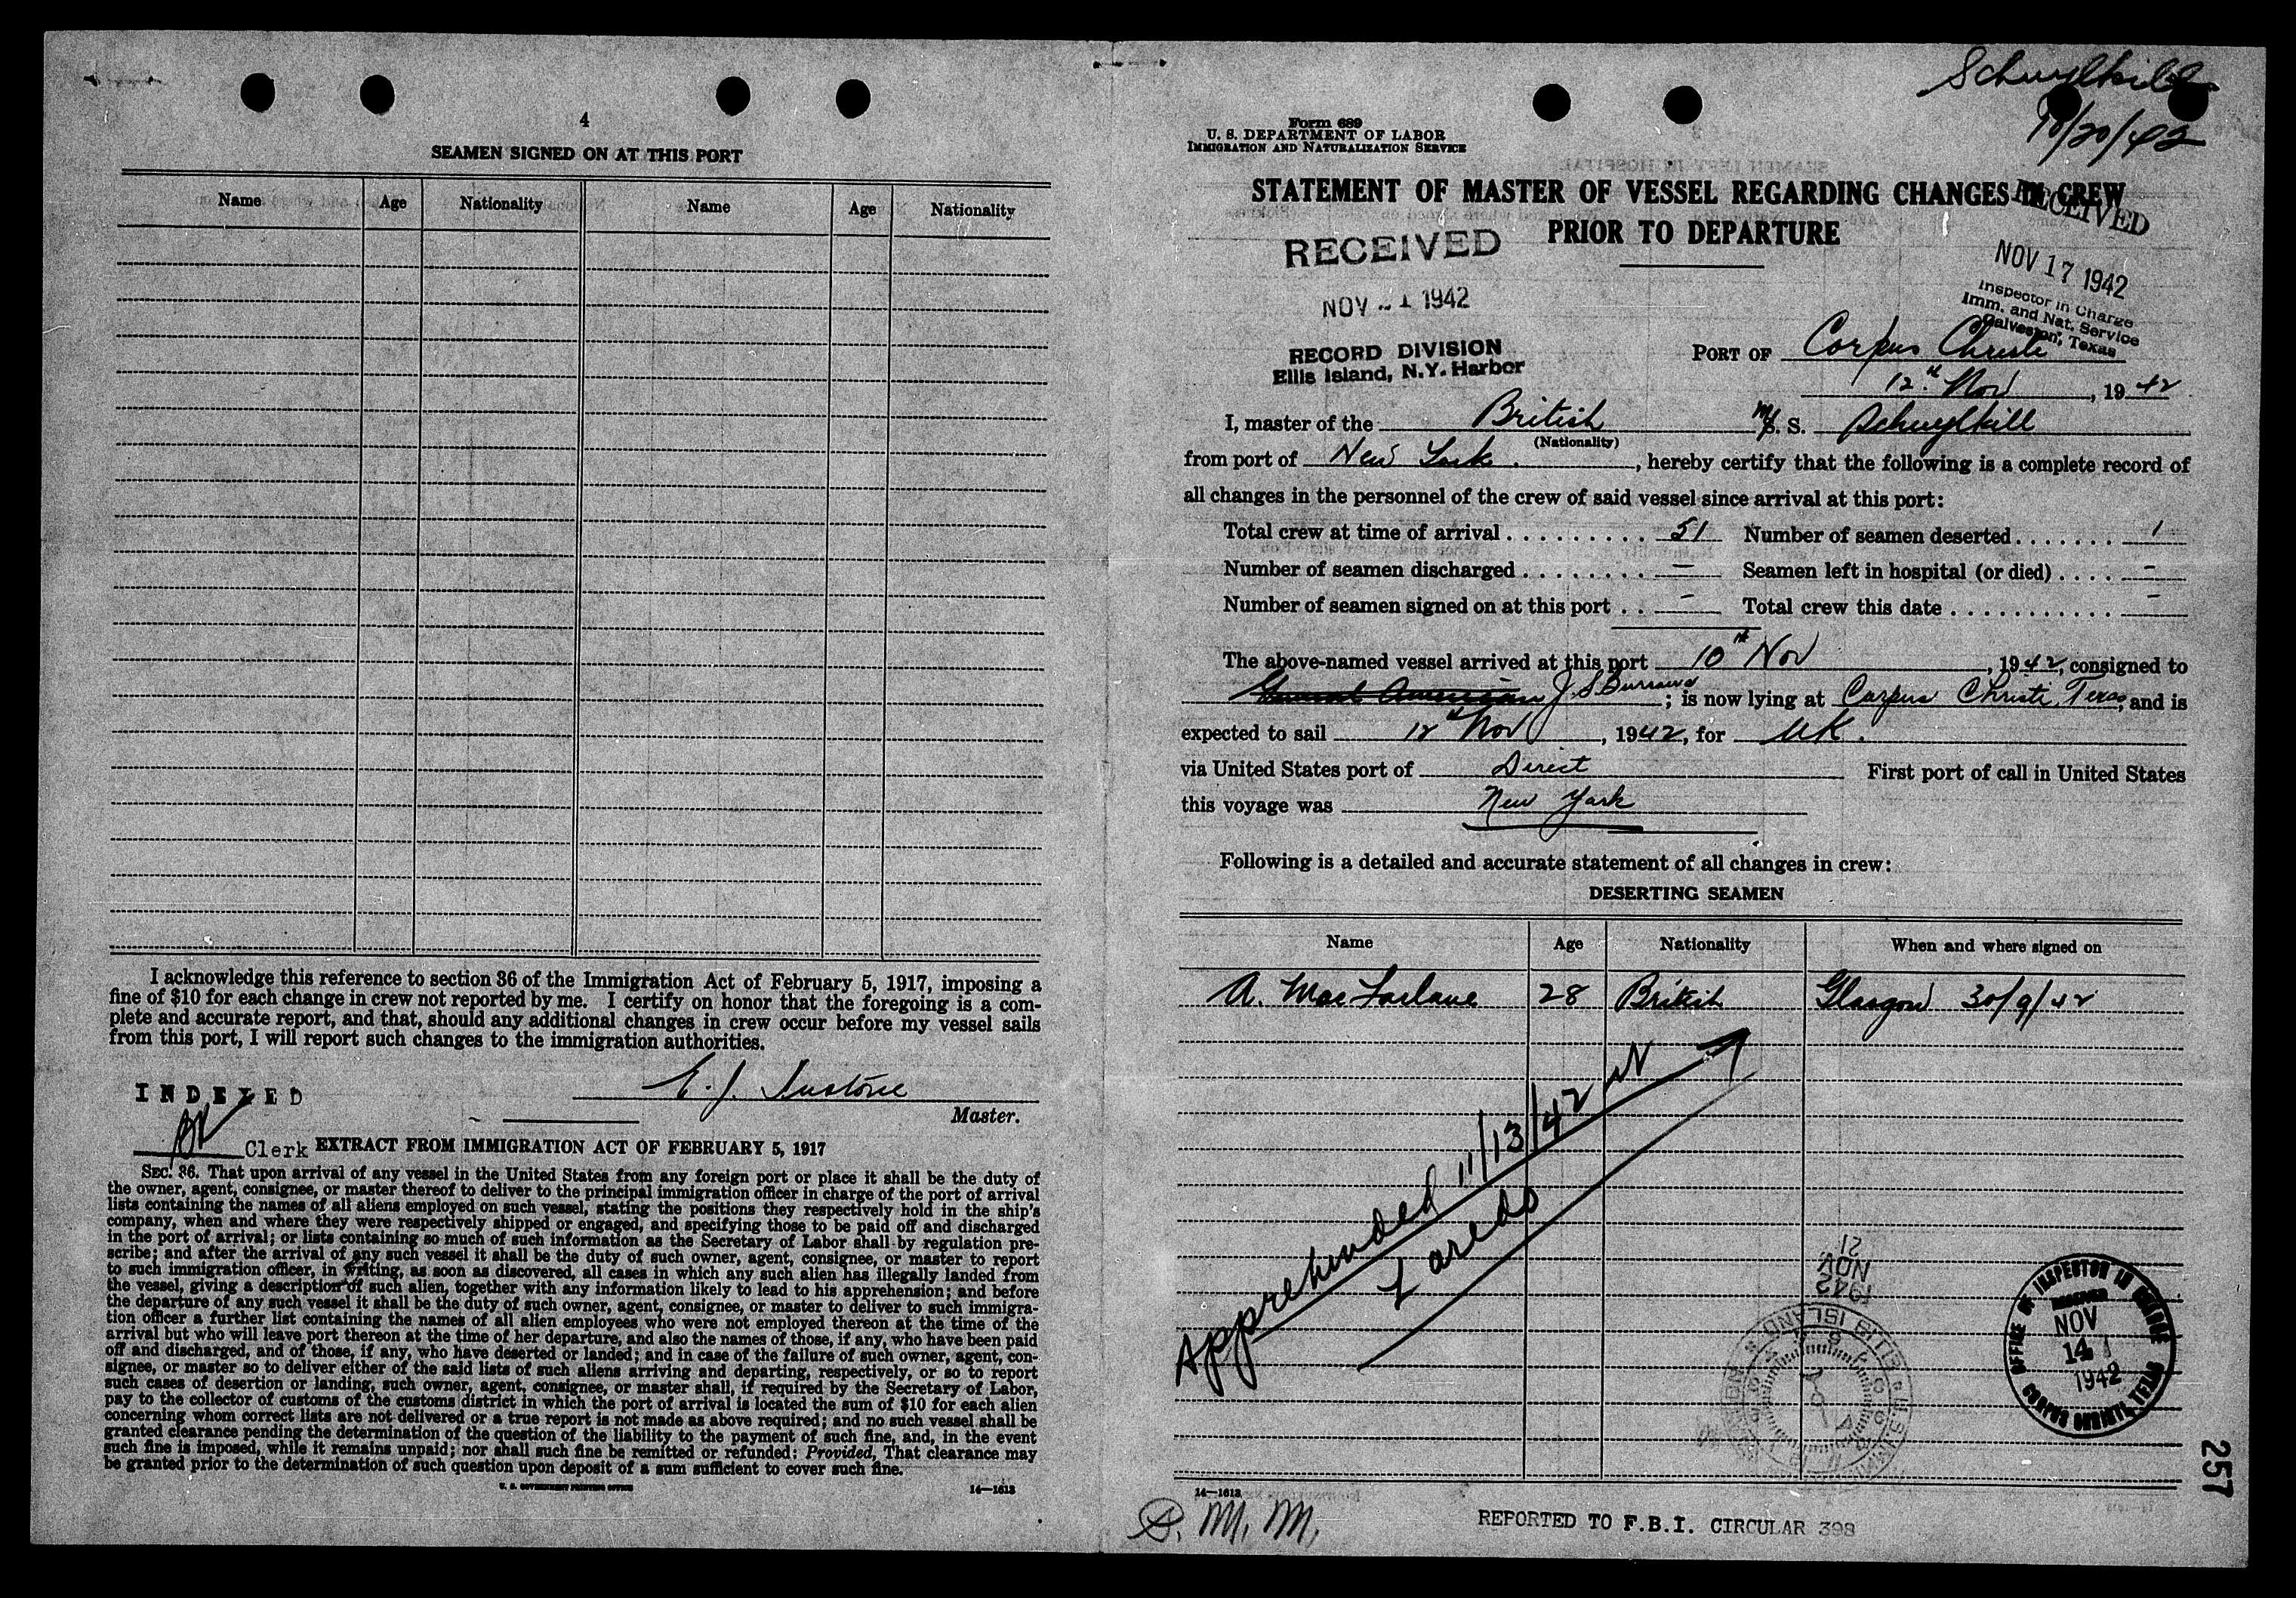 4
SEAMEN SIGNED ON AT THIS PORT
Name Age Nationality Name Age Nationality
I acknowledge this reference to section 36 of the Immigration Act of February 5, 1917, imposing a
fine of $10 for each change in crew not reported by me. I certify on honor that the foregoing is a com-
plete and accurate report, and that, should any additional changes in crew occur before my vessel sails
from this port, I will report such changes to the immigration authorities.
INDEXED
E. J.
Master.
Clerk
EXTRACT FROM IMMIGRATION ACT OF FEBRUARY 5, 1917
SEC. 36. That upon arrival of any vessel in the United States from any foreign port or place it shall be the duty of
the owner, agent, consignee, or master thereof to deliver to the principal immigration officer in charge of the port of arrival
lists containing the names of all aliens employed on such vessel, stating the positions they respectively hold in the ship's
company, when and where they were respectively shipped or engaged, and specifying those to be paid off and discharged
in the port of arrival; or lists containing so much of such information as the Secretary of Labor shall by regulation pre-
scribe; and after the arrival of any such vessel it shall be the duty of such owner, agent, consignee, or master to report
to such immigration officer, in writing, as soon as discovered, all cases in which any such alien has illegally landed from
the vessel, giving a description of such alien, together with any information likely to lead to his apprehension; and before
the departure of any such vessel it shall be the duty of such owner, agent, consignee, or master to deliver to such immigra-
tion officer a further list containing the names of all alien employees who were not employed thereon at the time of the
arrival but who will leave port thereon at the time of her departure, and also the names of those, if any, who have been paid
off and discharged, and of those, if any, who have deserted or landed; and in case of the failure of such owner, agent, con-
signee, or master so to deliver either of the said lists of such aliens arriving and departing, respectively, or so to report
such cases of desertion or landing, such owner, agent, consignee, or master shall, if required by the Secretary of Labor,
pay to the collector of customs of the customs district in which the port of arrival is located the sum of $10 for each alien
concerning whom correct lists are not delivered or a true report is not made as above required; and no such vessel shall be
granted clearance pending the determination of the question of the liability to the payment of such fine, and, in the event
such fine is imposed, while it remains unpaid; nor shall such fine be remitted or refunded: Provided, That clearance may
be granted prior to the determination of such question upon deposit of a sum sufficient to cover such fine.
U. S. GOVERNMENT PRINTING OFFICE 14—1613
Schuylkill
10/20/42
Form 689
U. S. DEPARTMENT OF LABOR
IMMIGRATION AND NATURALIZATION SERVICE
STATEMENT OF MASTER OF VESSEL REGARDING CHANGES IN CREW
PRIOR TO DEPARTURE
RECEIVED
NOV 17 1942
Inspector in Charge
Imm. and Nat. Service
Galveston, Texas
RECEIVED
NOV 21 1942
RECORD DIVISION
Ellis Island, N.Y. Harbor
PORT OF Corpus Christi
12th Nov, 1942
I, master of the British M/S. S. Schuylkill
(Nationality)
from port of New York., hereby certify that the following is a complete record of
all changes in the personnel of the crew of said vessel since arrival at this port:
Total crew at time of arrival 51 Number of seamen deserted 1
Number of seamen discharged — Seamen left in hospital (or died) -
Number of seamen signed on at this port - Total crew this date -
The above-named vessel arrived at this port 10th Nov, 1942, consigned to
J. S Burrows; is now lying at Corpus Christi, Texas, and is
expected to sail 12th Nov, 1942, for UK.
via United States port of Direct First port of call in United States
this voyage was New York
Following is a detailed and accurate statement of all changes in crew:
DESERTING SEAMEN
Name Age Nationality When and where signed on
A. MacFarlane 28 British Glasgow 30/9/42
Apprehended 11/13/42 at
Laredo
21
NOV
1942
OFFICE OF INSPECTOR IN CHARGE
RECEIVED
NOV
14
1942
CORPUS CHRISTI, TEXAS
257
14—1613
S. M. M.
REPORTED TO F.B.I. CIRCULAR 398